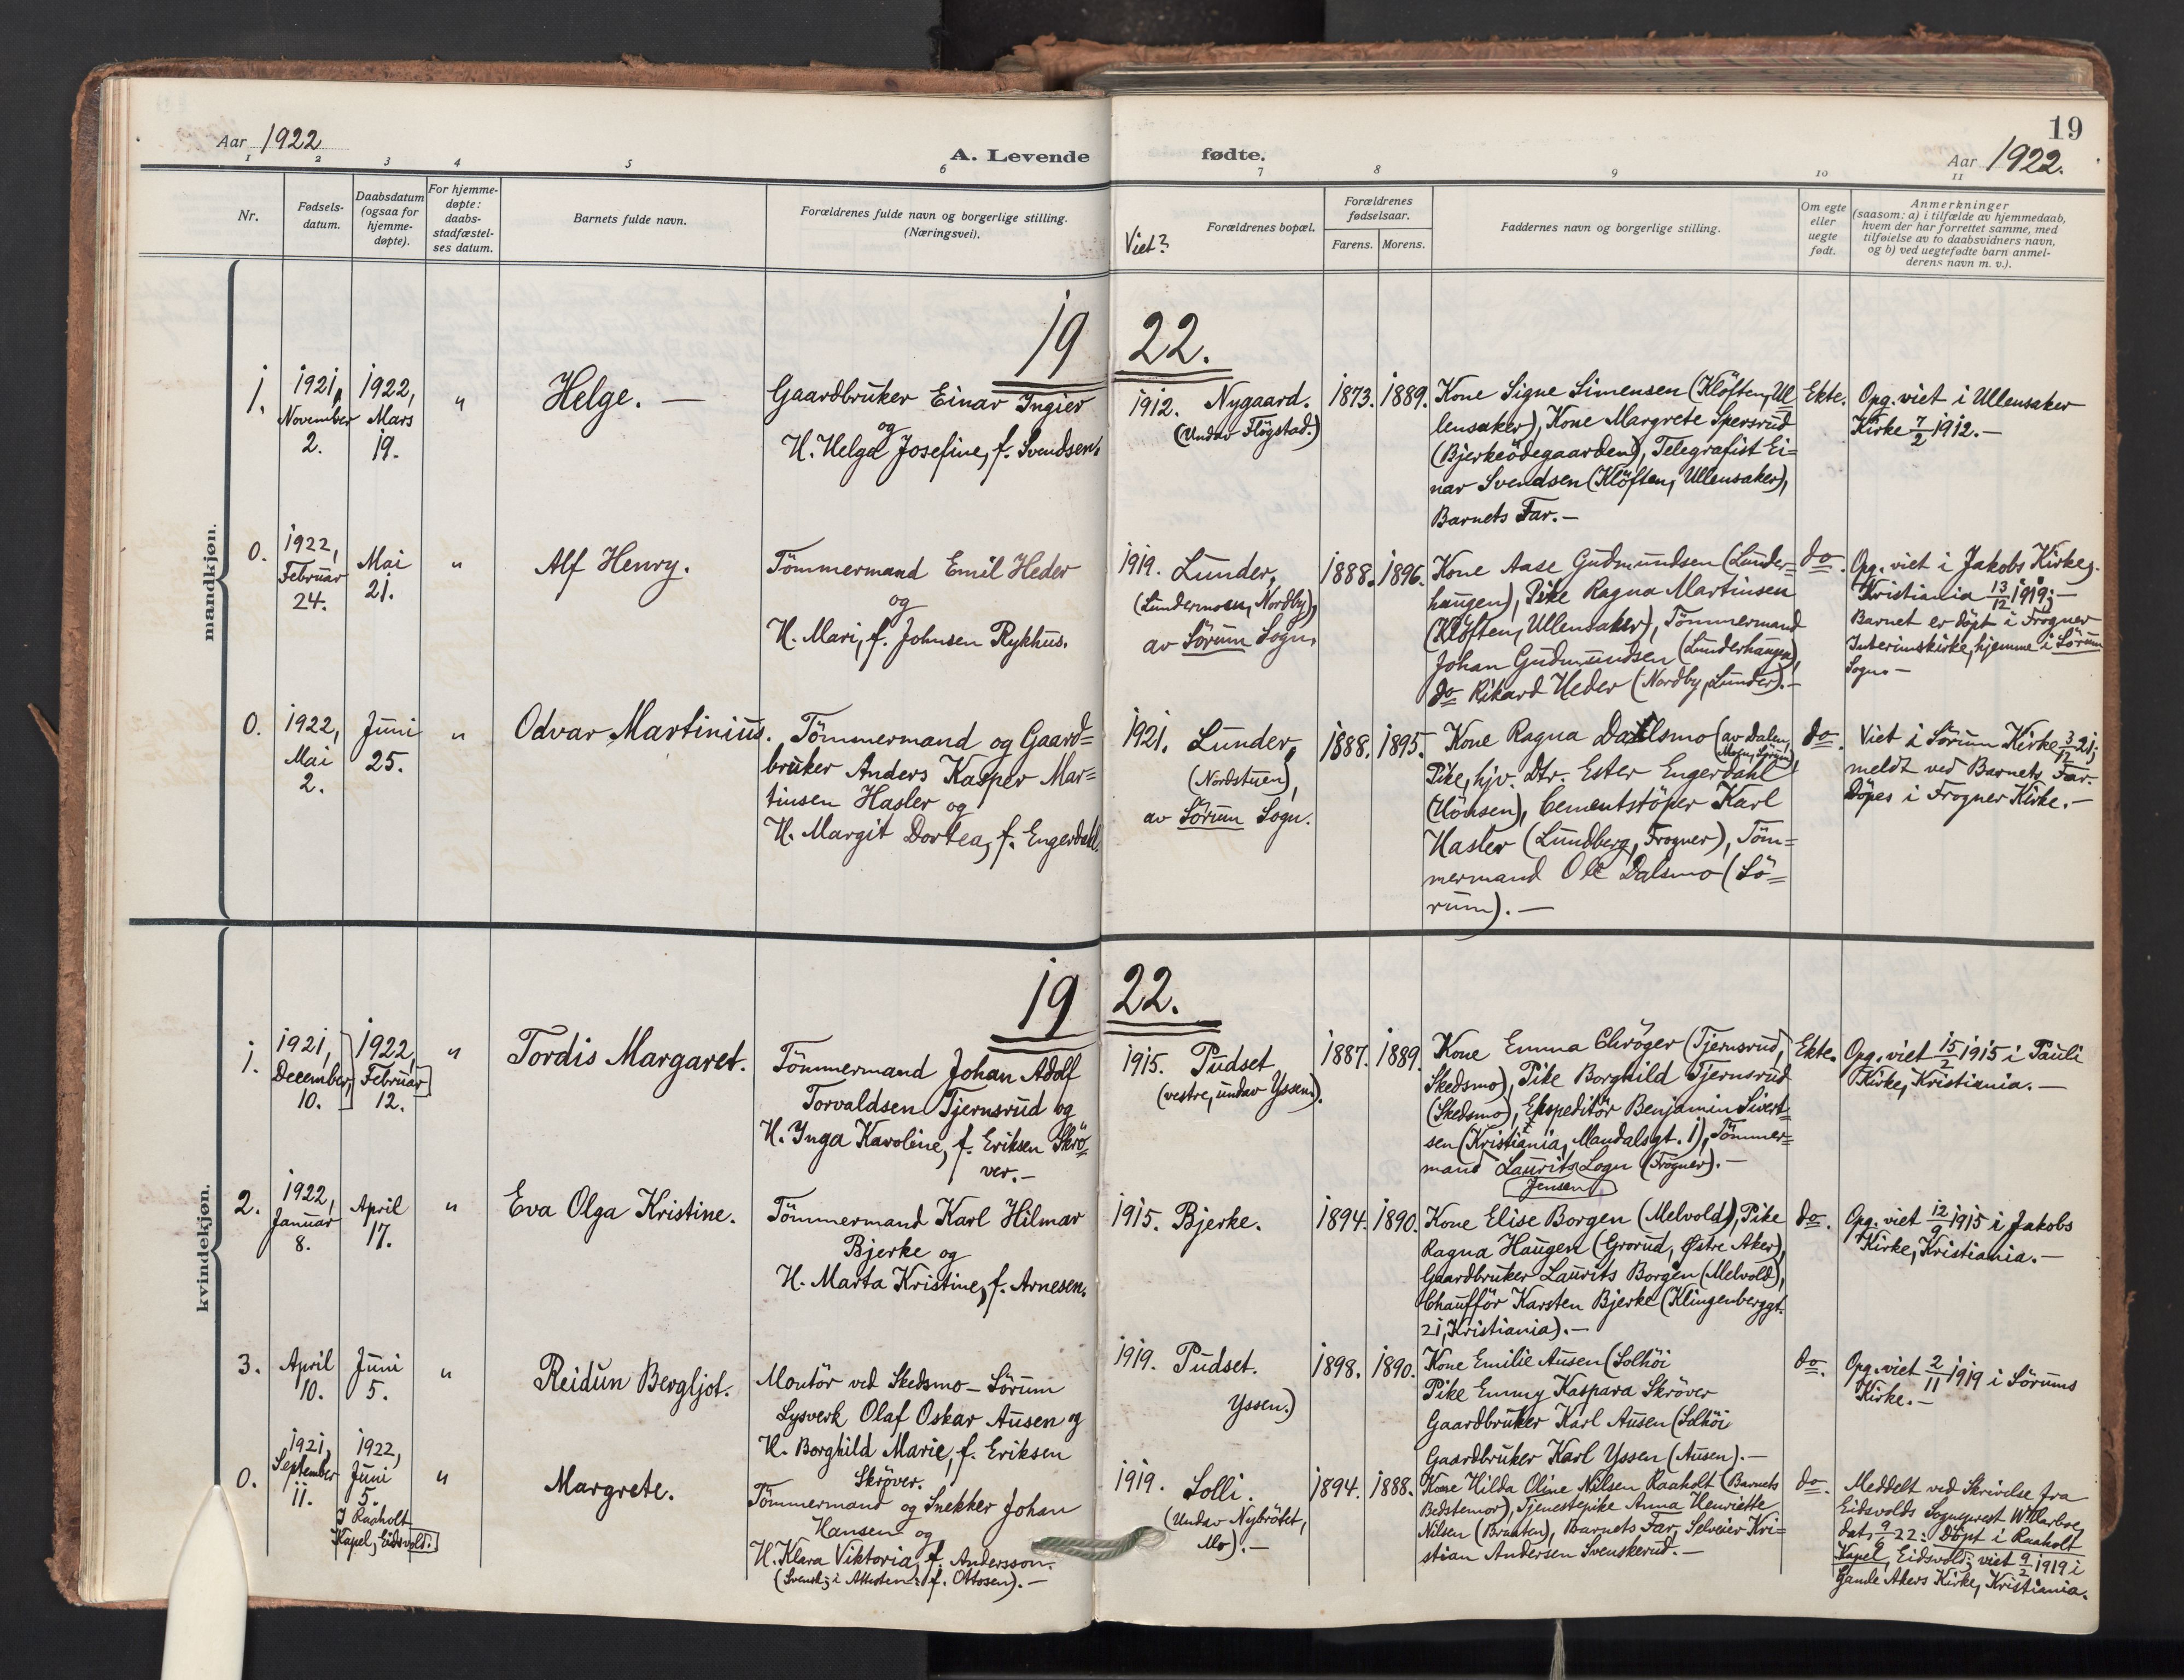 Aar 1922
A. Levende fødte.
19
Aar 1922.
1 2 3 4 5 6 7 8 9 10 11
Nr.
Fødsels-
datum.
Daabsdatum
(ogsaa for
hjemme-
døpte).
For hjemme-
døpte:
daabs-
stadfæstel-
ses datum.
Barnets fulde navn.
Forældrenes fulde navn og borgerlige stilling.
(Næringsvei).
Viet?
Forældrenes bopæl.
Forældrenes
fødselsaar.
Farens. Morens.
Faddernes navn og borgerlige stilling.
Om egte
eller
uegte
født.
Anmerkninger
(saasom: a) i tilfælde av hjemmedaab,
hvem der har forrettet samme, med
tilføielse av to daabsvidners navn,
og b) ved uegtefødte barn anmel-
derens navn m. v.).
mandkjøn.
19 22.
1.
1921,
November
2.
1922,
Mars
19.
"
Helge. —
Gaardbruker Einar Ingier
og
H. Helga Josefine, f. Svendsen.
1912. Nygaard.
(Undav Flögstad.)
1873. 1889.
Kone Signe Simensen (Klöften, Ul
lensaker), Kone Margrete Spersrud
(Bjerkeödegaarden), Telegrafist Ei=
nar Svendsen (Klöften, Ullensaker),
Barnets Far. —
Ekte.
Opg. viet i Ullensaker
Kirke 7/2 1912. —
0.
1922,
Februar
24.
Mai
21.
"
Alf Henry.
Tömmermand Emil Heder
og
H. Mari, f. Johnsen Rykhus.
1919. Lunder,
(Lundermoen, Nordby),
av Sörum Sogn.
1888. 1896.
Kone Aase Gudmundsen (Lunder=
haugen), Pike Ragna Martinsen
(Klöften, Ullensaker), Tömmermand
Johan Gudmundsen (Lunderhaugen),
do Rikard Heder (Nordby, Lunder). —
do.
Opg. viet i Jakobs Kirke,
Kristiania 13/12 1919; —
Barnet er döpt i Frogner
Interimskirke, hjemme i Sörum
Sogn. —
0.
1922,
Mai
2.
Juni
25.
"
Odvar Martinius.
Tömmermand og Gaard=
bruker Anders Kasper Mar=
tinsen Hasler og
H. Margit Dortea, f. Engerdahl.
1921. Lunder,
(Nordstuen),
av Sörum Sogn.
1888. 1895.
Kone Ragna Dalsmo (av Dalen,
Moen, Sörum)
Pike, hjv. Dtr. Ester Engerdahl
(Hönsen), Cementstöper Karl
Hasler (Lundberg, Frogner), Töm=
mermand Ole Dalsmo (Sö=
rum). —
do.
Viet i Sörum Kirke 3/12 21;
meldt ved Barnets Far.
Döpes i Frogner Kirke. —
kvindekjøn.
19 22.
1.
1921,
December
10.
1922,
Februar
12.
"
Tordis Margaret.
Tömmermand Johan Adolf
Torvaldsen Tjernsrud og
H. Inga Karoline, f. Eriksen Skrö=
ver. —
1915. Pudset
(vestre, undav Yssen).
1887. 1889.
Kone Emma Chröger (Tjernsrud,
Skedsmo), Pike Borghild Tjernsrud
(Skedsmo), Ekspeditör Benjamin Sivert=
sen (Kristiania, Mandalsgt. 1), Tömmer=
mand Laurits Logn (Frogner). —
Jensen
Ekte.
Opg. viet 15/2 1915 i Pauli
Kirke, Kristiania. —
2.
1922,
Januar
8.
April
17.
"
Eva Olga Kristine.
Tömmermand Karl Hilmar
Bjerke og
H. Marta Kristine, f. Arnesen.
1915. Bjerke.
1894. 1890.
Kone Elise Borgen (Melvold), Pike
Ragna Haugen (Grorud, Østre Aker),
Gaardbruker Laurits Borgen (Melvold),
Chauffför Karsten Bjerke (Klingenberggt.
21, Kristiania). —
do.
Opg. viet 12/9 1915 i Jakobs
Kirke, Kristiania. —
3.
April
10.
Juni
5.
"
Reidun Bergljot.
Montör ved Skedsmo-Sörum
Lysverk Olaf Oskar Ausen og
H. Borghild Marie, f. Eriksen
Skröver.
1919. Pudset.
Yssen.)
1898. 1890.
Kone Emilie Ausen (Solhöi
Pike Emmy Kaspara Skröver
Gaardbruker Karl Ausen (Solhöi
Gaardbruker Karl Yssen (Ausen). —
do.
Opg. viet 2/11 1919 i Sörums
Kirke. —
0.
1921,
September
11.
1922,
Juni
5.
I Raaholt
Kapel, Eidsvold.
"
Margrete.
Tömmermand og Snekker Johan
Hansen og
H. Klara Viktoria, f. Andersson.
(Svensk; i Attesten: f. Ottosen). —
1919. Solli.
(Undav Nybrötet,
Mo). —
1894. 1888.
Kone Hilda Oline Nilsen Raaholt (Barnets
Bedstemor), Tjenestepike Anna Henriette
Nilsen (Braaten), Barnets Far, Selveier Kri=
stian Andersen Svenskerud. —
do.
Meddelt ved Skrivelse fra
Eidsvolds Sogneprest
dat. 9/9 22. Döpt i Raaholt
Kapel, Eidsvold; viet 9/2 1919 i
Gamle Akers Kirke, Kristiania.